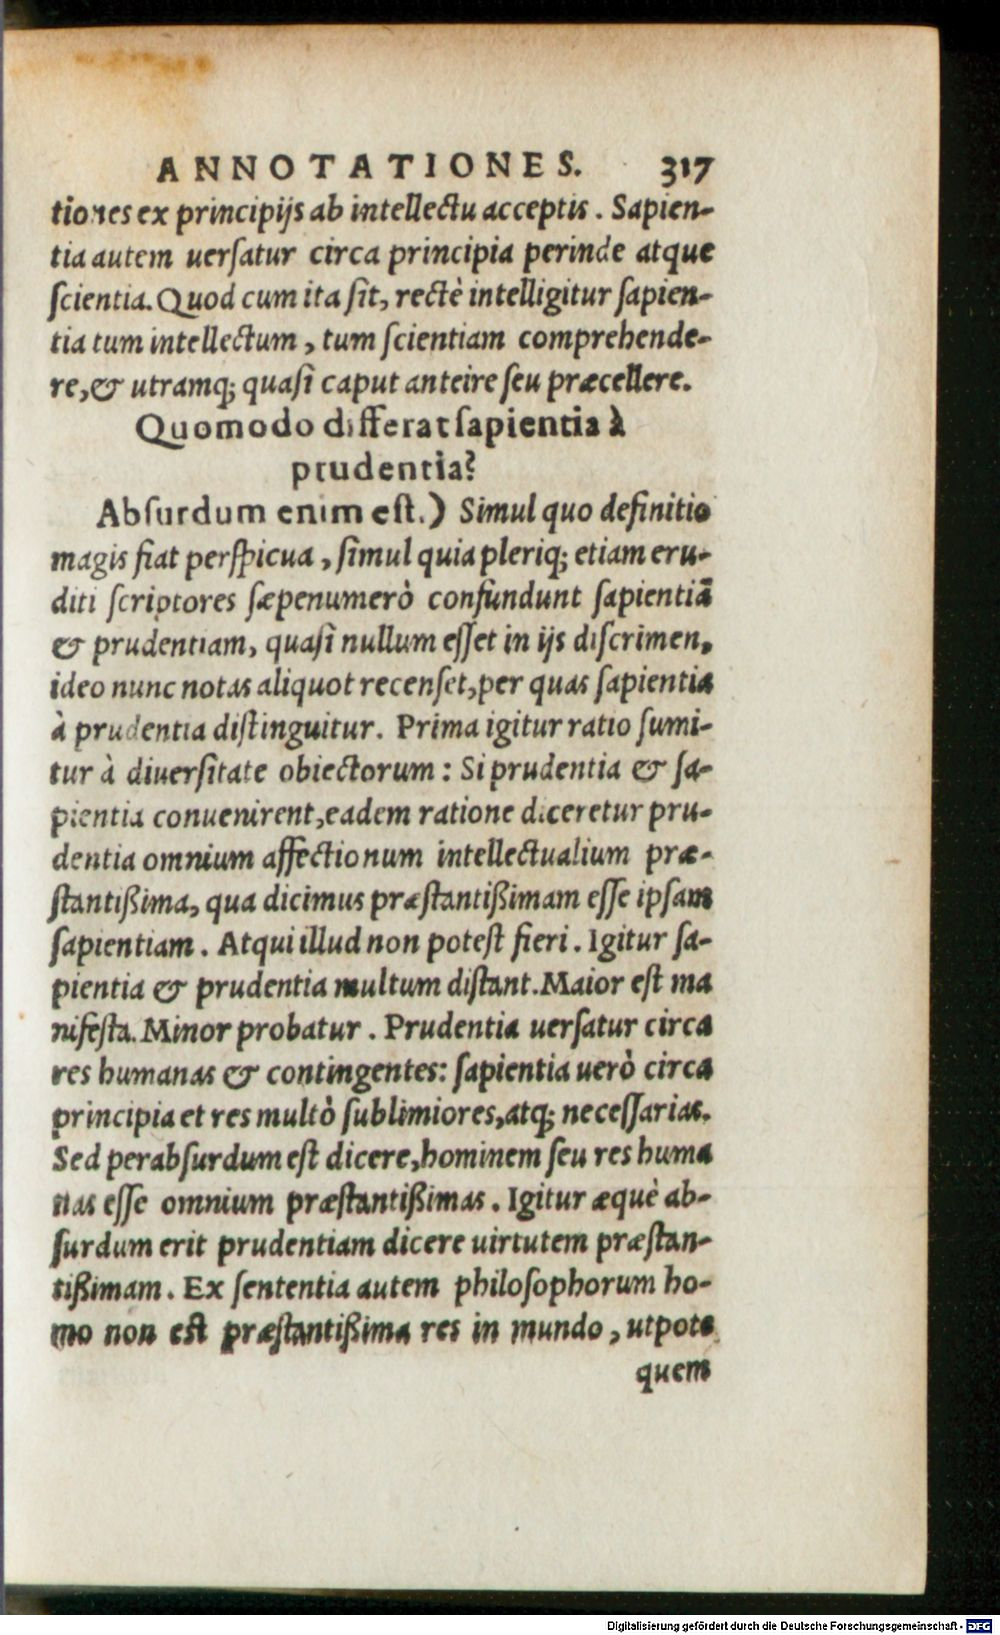 ANNOTATIONES. 317
tiones ex principijs ab intellectu acceptis. Sapien-
tia autem uerſatur circa principia perinde atque
ſcientia. Quod cum ita ſit, rectè intelligitur ſapien-
tia tum intellectum, tum ſcientiam comprehende-
re, & utramq; quaſi caput anteire ſeu præcellere.
Quomodo differat ſapientia à
prudentia?
Abſurdum enim eſt.) Simul quo definitio
magis fiat perſpicua, ſimul quia pleriq; etiam eru-
diti ſcriptores ſæpenumerò confundunt ſapientiã
& prudentiam, quaſi nullum eſſet in ijs diſcrimen,
ideo nunc notas aliquot recenſet, per quas ſapientia
à prudentia diſtinguitur. Prima igitur ratio ſumi-
tur à diuerſitate obiectorum: Si prudentia & ſa-
pientia conuenirent, eadem ratione diceretur pru-
dentia omnium affectionum intellectualium præ-
ſtantißima, qua dicimus præſtantißimam eſſe ipſam
ſapientiam. Atqui illud non poteſt fieri. Igitur ſa-
pientia & prudentia multum diſtant. Maior eſt ma
nifeſta. Minor probatur. Prudentia uerſatur circa
res humanas & contingentes: ſapientia uerò circa
principia et res multò ſublimiores, atq; neceſſarias.
Sed perabſurdum eſt dicere, hominem ſeu res huma
nas eſſe omnium præſtantißimas. Igitur æquè ab-
ſurdum erit prudentiam dicere uirtutem præſtan-
tißimam. Ex ſententia autem philoſophorum ho-
mo non eſt præſtantißima res in mundo, utpote
quem
Digitalisierung gefördert durch die Deutsche Forschungsgemeinschaft - DFG